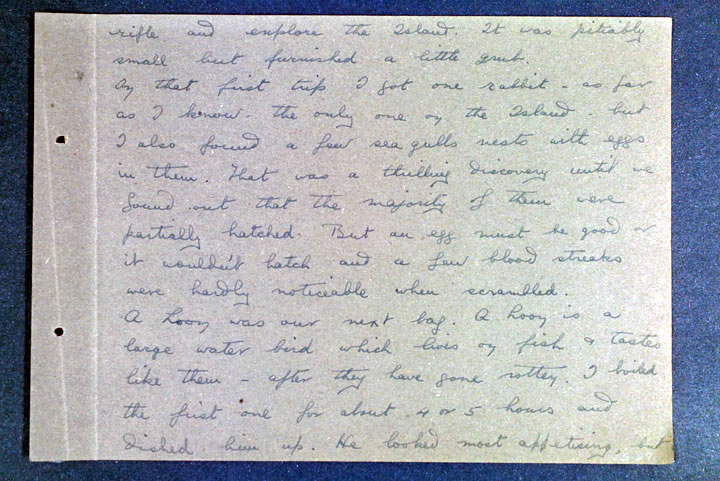 rifle and explore the Island. It was pitiably
small but furnished a little grub.
On that first trip I got one rabbit - as far
as I know - the only one on the Island - but
I also found a few sea gulls nests with eggs
in them. That was a thrilling discovery until we
found out that the majority of them were
partially hatched. But an egg must be good or
it wouldn't hatch and a few blood streaks
were hardly noticeable when scrambled.
A Loon was our next bag. A Loon is a
large water bird which lives on fish & tastes
like them - after they have gone rotten. I boiled
the first one for about 4 or 5 hours and
dished him up. He looked most appetising, but